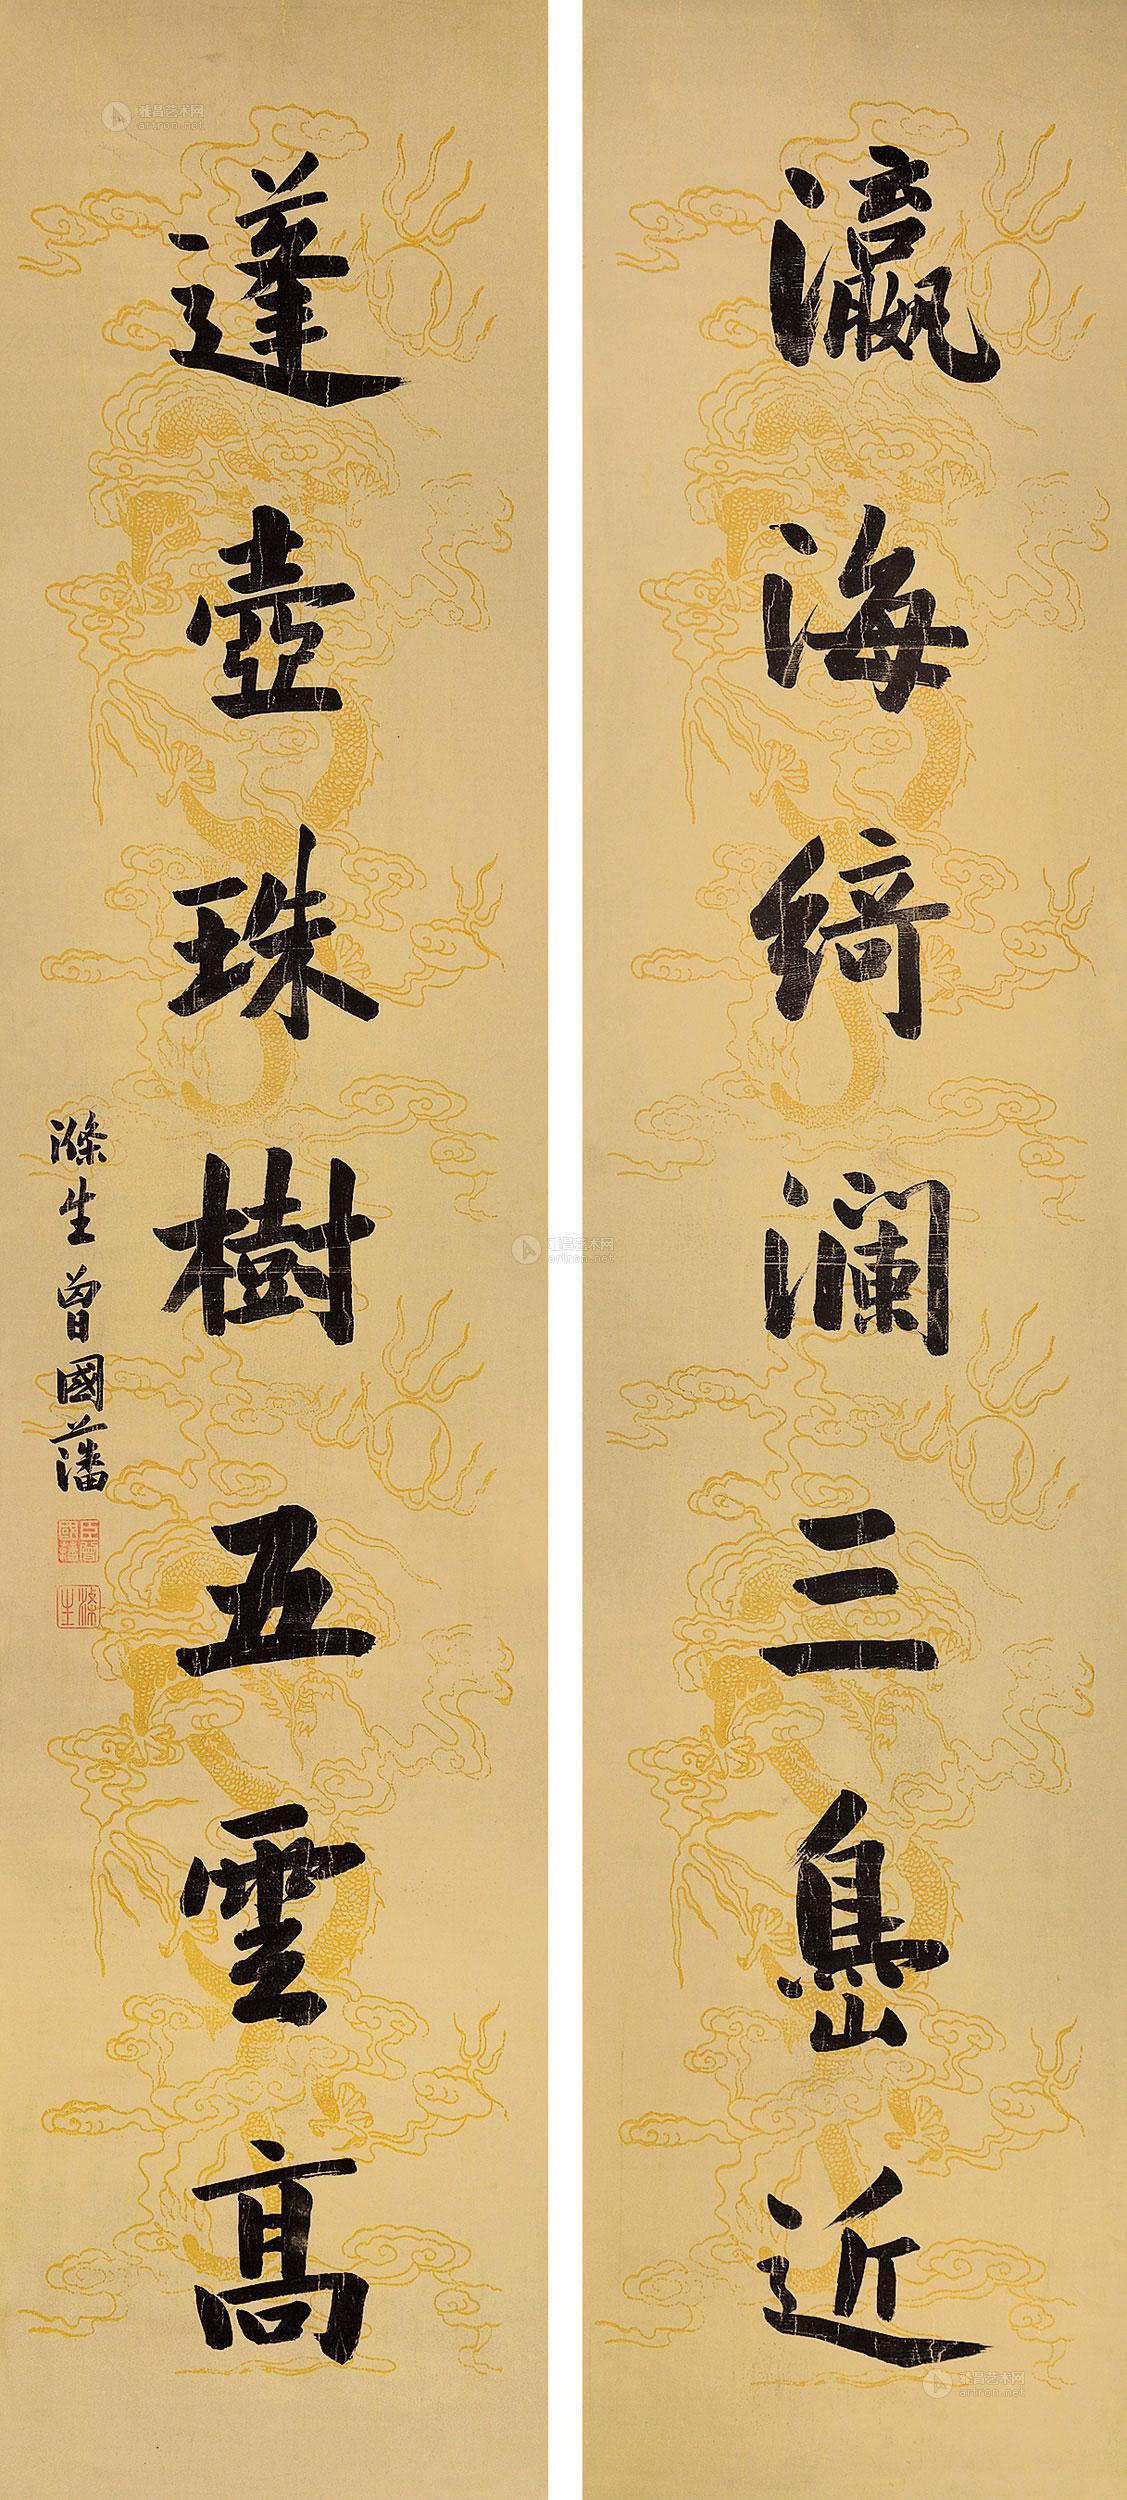 瀛海綺瀾三島近
蓬壺珠樹五雲高
滌生曾國藩
臣曾國藩
滌生
雅昌艺术网
artron.net
雅昌艺术网
artron.net
雅昌艺术网
artron.net